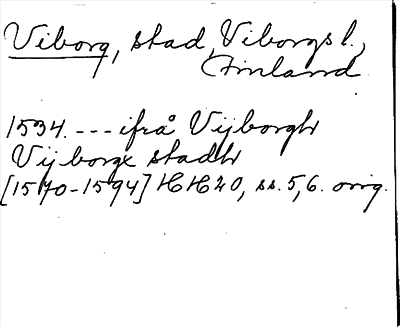 Viborg, stad, Viborgs l.,
Finland
1534. --- ifrå Vijborgh
Vijborgx stadh
[1570-1594] HH20, ss. 5, 6. orig.